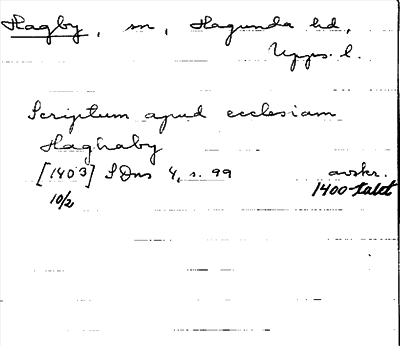 Hagby, sn, Hagunda hd,
Upps. l.
Scriptum apud ecclesiam
Haghaby
[1403] SDns 4, s. 99 avskr.
10/2 1400-talet